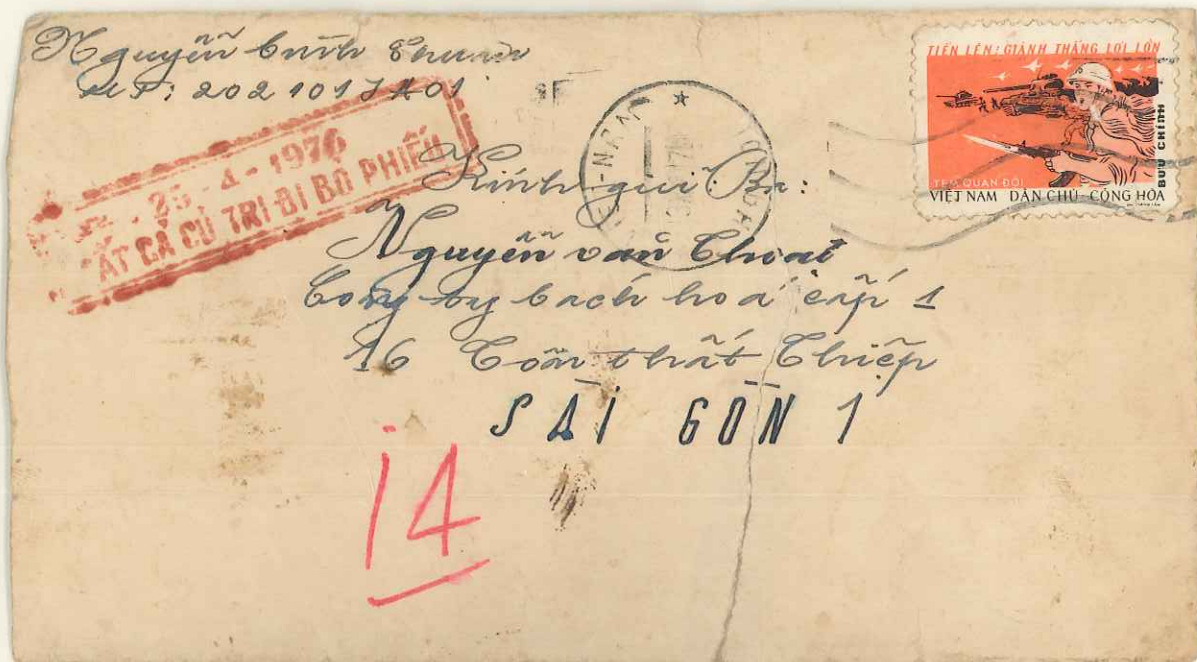 Nguyễn
202 101 J A01
25-4-1976
TẤT CẢ CỬ TRI ĐI BỎ PHIẾU
TIẾN LÊN! GIÀNH THẮNG LỢI LỚN
BƯU CHÍNH
TEM QUÂN ĐỘI
VIỆT NAM DÂN CHỦ CỘNG HÒA
Kính gửi Ba:
Nguyễn văn Thoat
Công ty bách hoá cấp 1
16 Tôn thất Thiệp
SÀI GÒN 1
14